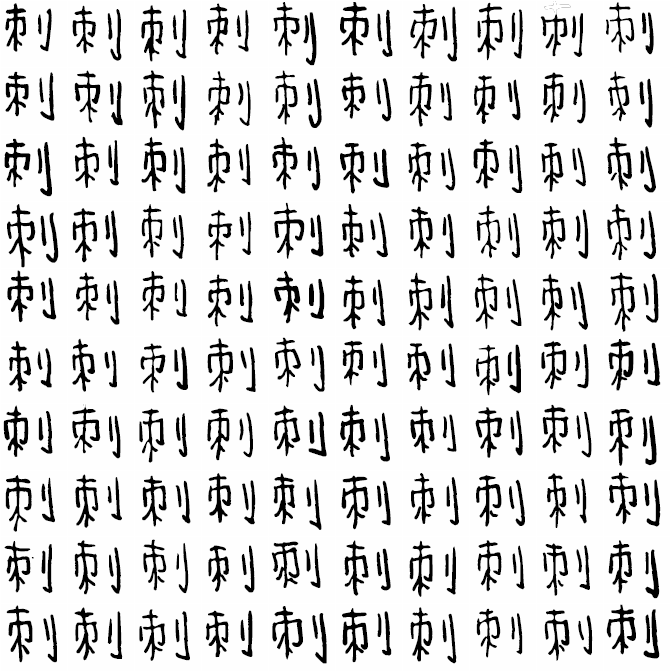 刺刺刺刺刺刺刺刺刺刺
刺刺刺刺刺刺刺刺刺刺
刺刺刺刺刺刺刺刺刺刺
刺刺刺刺刺刺刺刺刺刺
刺刺刺刺刺刺刺刺刺刺
刺刺刺刺刺刺刺刺刺刺
刺刺刺刺刺刺刺刺刺刺
刺刺刺刺刺刺刺刺刺刺
刺刺刺刺刺刺刺刺刺刺
刺刺刺刺刺刺刺刺刺刺